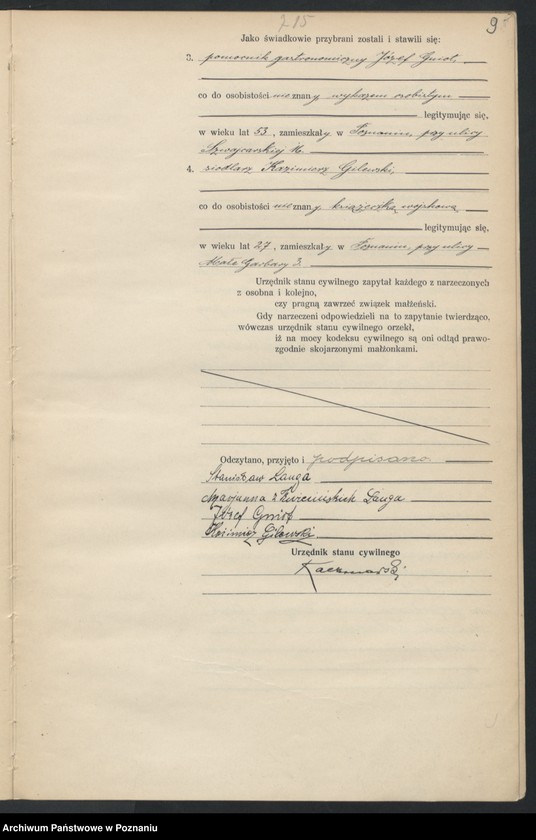 215
9
Jako świadkowie przybrani zostali i stawili się:
3. pomocnik gastronomiczny Józef Gniot,
co do osobistości nieznany wykazem osobistym
legitymując się,
w wieku lat 53, zamieszkały w Poznaniu, przy ulicy
Szwajcarskiej
4. siodlarz Kazimierz Gilewski,
co do osobistości nieznany książeczką wojskową
legitymując się,
w wieku lat 27, zamieszkały w Poznaniu, przy ulicy
Małe Garbary 3.
Urzędnik stanu cywilnego zapytał każdego z narzeczonych
z osobna i kolejno,
czy pragną zawrzeć związek małżeński.
Gdy narzeczeni odpowiedzieli na to zapytanie twierdząco,
wówczas urzędnik stanu cywilnego orzekł,
iż na mocy kodeksu cywilnego są oni odtąd prawo-
zgodnie skojarzonymi małżonkami.
Odczytano, przyjęto i podpisano
Stanisław Langa
Marjanna z Langa
Józef Gniot
Kazimierz Gilewski
Urzędnik stanu cywilnego
Kaczmarski
Archiwum Państwowe w Poznaniu